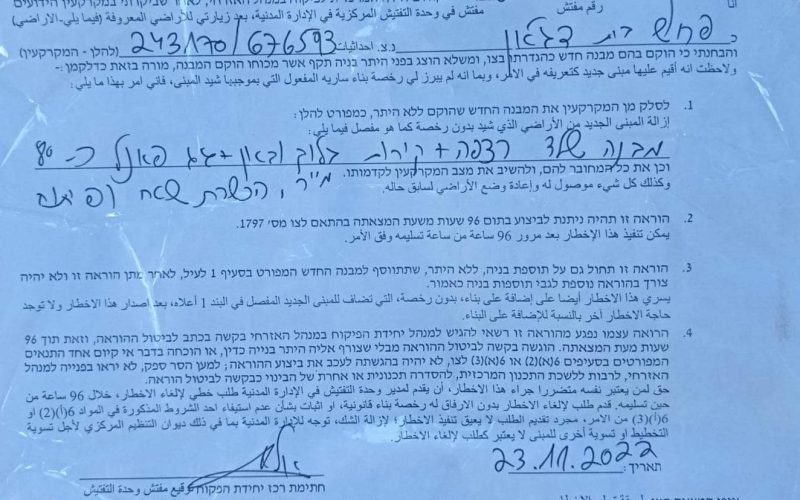 אנו
רقم مفتش مفتش في وحدة التفتيش المركزية في الإدارة المدنية، بعد زيارتي للأراضي المعروفة (فيما يلي-الاراضي)
נ.צ. احداثيات 243170/676593 (להלן - המקרקעין)
והבחנתי כי הוקם בהם מבנה חדש כהגדרתו בצו, ומשלא הוצג בפני היתר בניה תקף אשר מכוחו הוקם המבנה, מורה בזאת כדלקמן:-
ولاحظت انه أقيم عليها مبنى جديد كتعريفه في الامر، وبما انه لم يبرز لي رخصة بناء ساريه المفعول التي بموجبها شيد المبنى، فاني امر بهذا ما يلي:
1. לסלק מן המקרקעין את המבנה החדש שהוקם ללא היתר, כמפורט להלן:
إزالة المبنى الجديد من الأراضي الذي شيد بدون رخصة كما هو مفصل فيما يلي:
מבנה שלד רצפה + קירות בלוק ובטון + גג פאנל כ- 80
וכן את כל המחובר להם, ולהשיב את מצב המקרקעין לקדמותו.
وكذلك كل شيء موصول له وإعادة وضع الأراضي لسابق حاله.
מ"ר, הכשרת שטח
2. הוראה זו תהיה ניתנת לביצוע בתום 96 שעות משעת המצאתה בהתאם לצו מס' 1797.
يمكن تنفيذ هذا الإخطار بعد مرور 96 ساعة من ساعة تسليمه وفق الأمر.
3. הוראה זו תחול גם על תוספת בניה, ללא היתר, שתתווסף למבנה החדש המפורט בסעיף 1 לעיל, לאחר מתן הוראה זו ולא יהיה
צורך בהוראה נוספת לגבי תוספות בניה כאמור.
يسري هذا الاخطار أيضا على إضافة على بناء، بدون رخصة، التي تضاف للمبنى الجديد المفصل في البند 1 أعلاه، بعد إصدار هذا الاخطار ولا توجد
حاجة لاخطار آخر بالنسبة للإضافة على البناء.
4. הרואה עצמו נפגע מהוראה זו רשאי להגיש למנהל יחידת הפיקוח במנהל האזרחי בקשה בכתב לביטול ההוראה, וזאת תוך 96
שעות מעת המצאתה. הוגשה בקשה לביטול ההוראה מבלי שצורף אליה היתר בנייה כדין, או הוכחה בדבר אי קיום אחד התנאים
המפורטים בסעיפים 6(א)(2) או 6(א)(3) לצו, לא יהיה בהגשתה לעכב את ביצוע ההוראה; למען הסר ספק, לא יראו בפנייה למנהל
האזרחי, לרבות ללשכת התכנון המרכזית, להסדרה תכנונית או אחרת של הבינוי כבקשה לביטול הוראה.
حق لمن يعتبر نفسه متضررا جراء هذا الاخطار، أن يقدم لمدير وحدة التفتيش في الإدارة المدنية طلب خطي لإلغاء الاخطار، خلال 96 ساعة من
حين تسليمه. قدم طلب لإلغاء الاخطار بدون الارفاق له رخصة بناء قانونية، او اثبات بشأن عدم استيفاء احد الشروط المذكورة في المواد 6(أ)(2) او
6(أ)(3) من الامر، مجرد تقديم الطلب لا يعيق تنفيذ الاخطار؛ لازالة الشك، توجه للإدارة المدنية بما في ذلك ديوان التنظيم المركزي لأجل تسوية
التخطيط او تسوية أخرى للمبنى لا يعتبر كطلب لإلغاء الاخطار.
תאריך: 23.11.2022
חתימת רכז יחידת הפקוח توقيع مفتش وحدة التفتيش